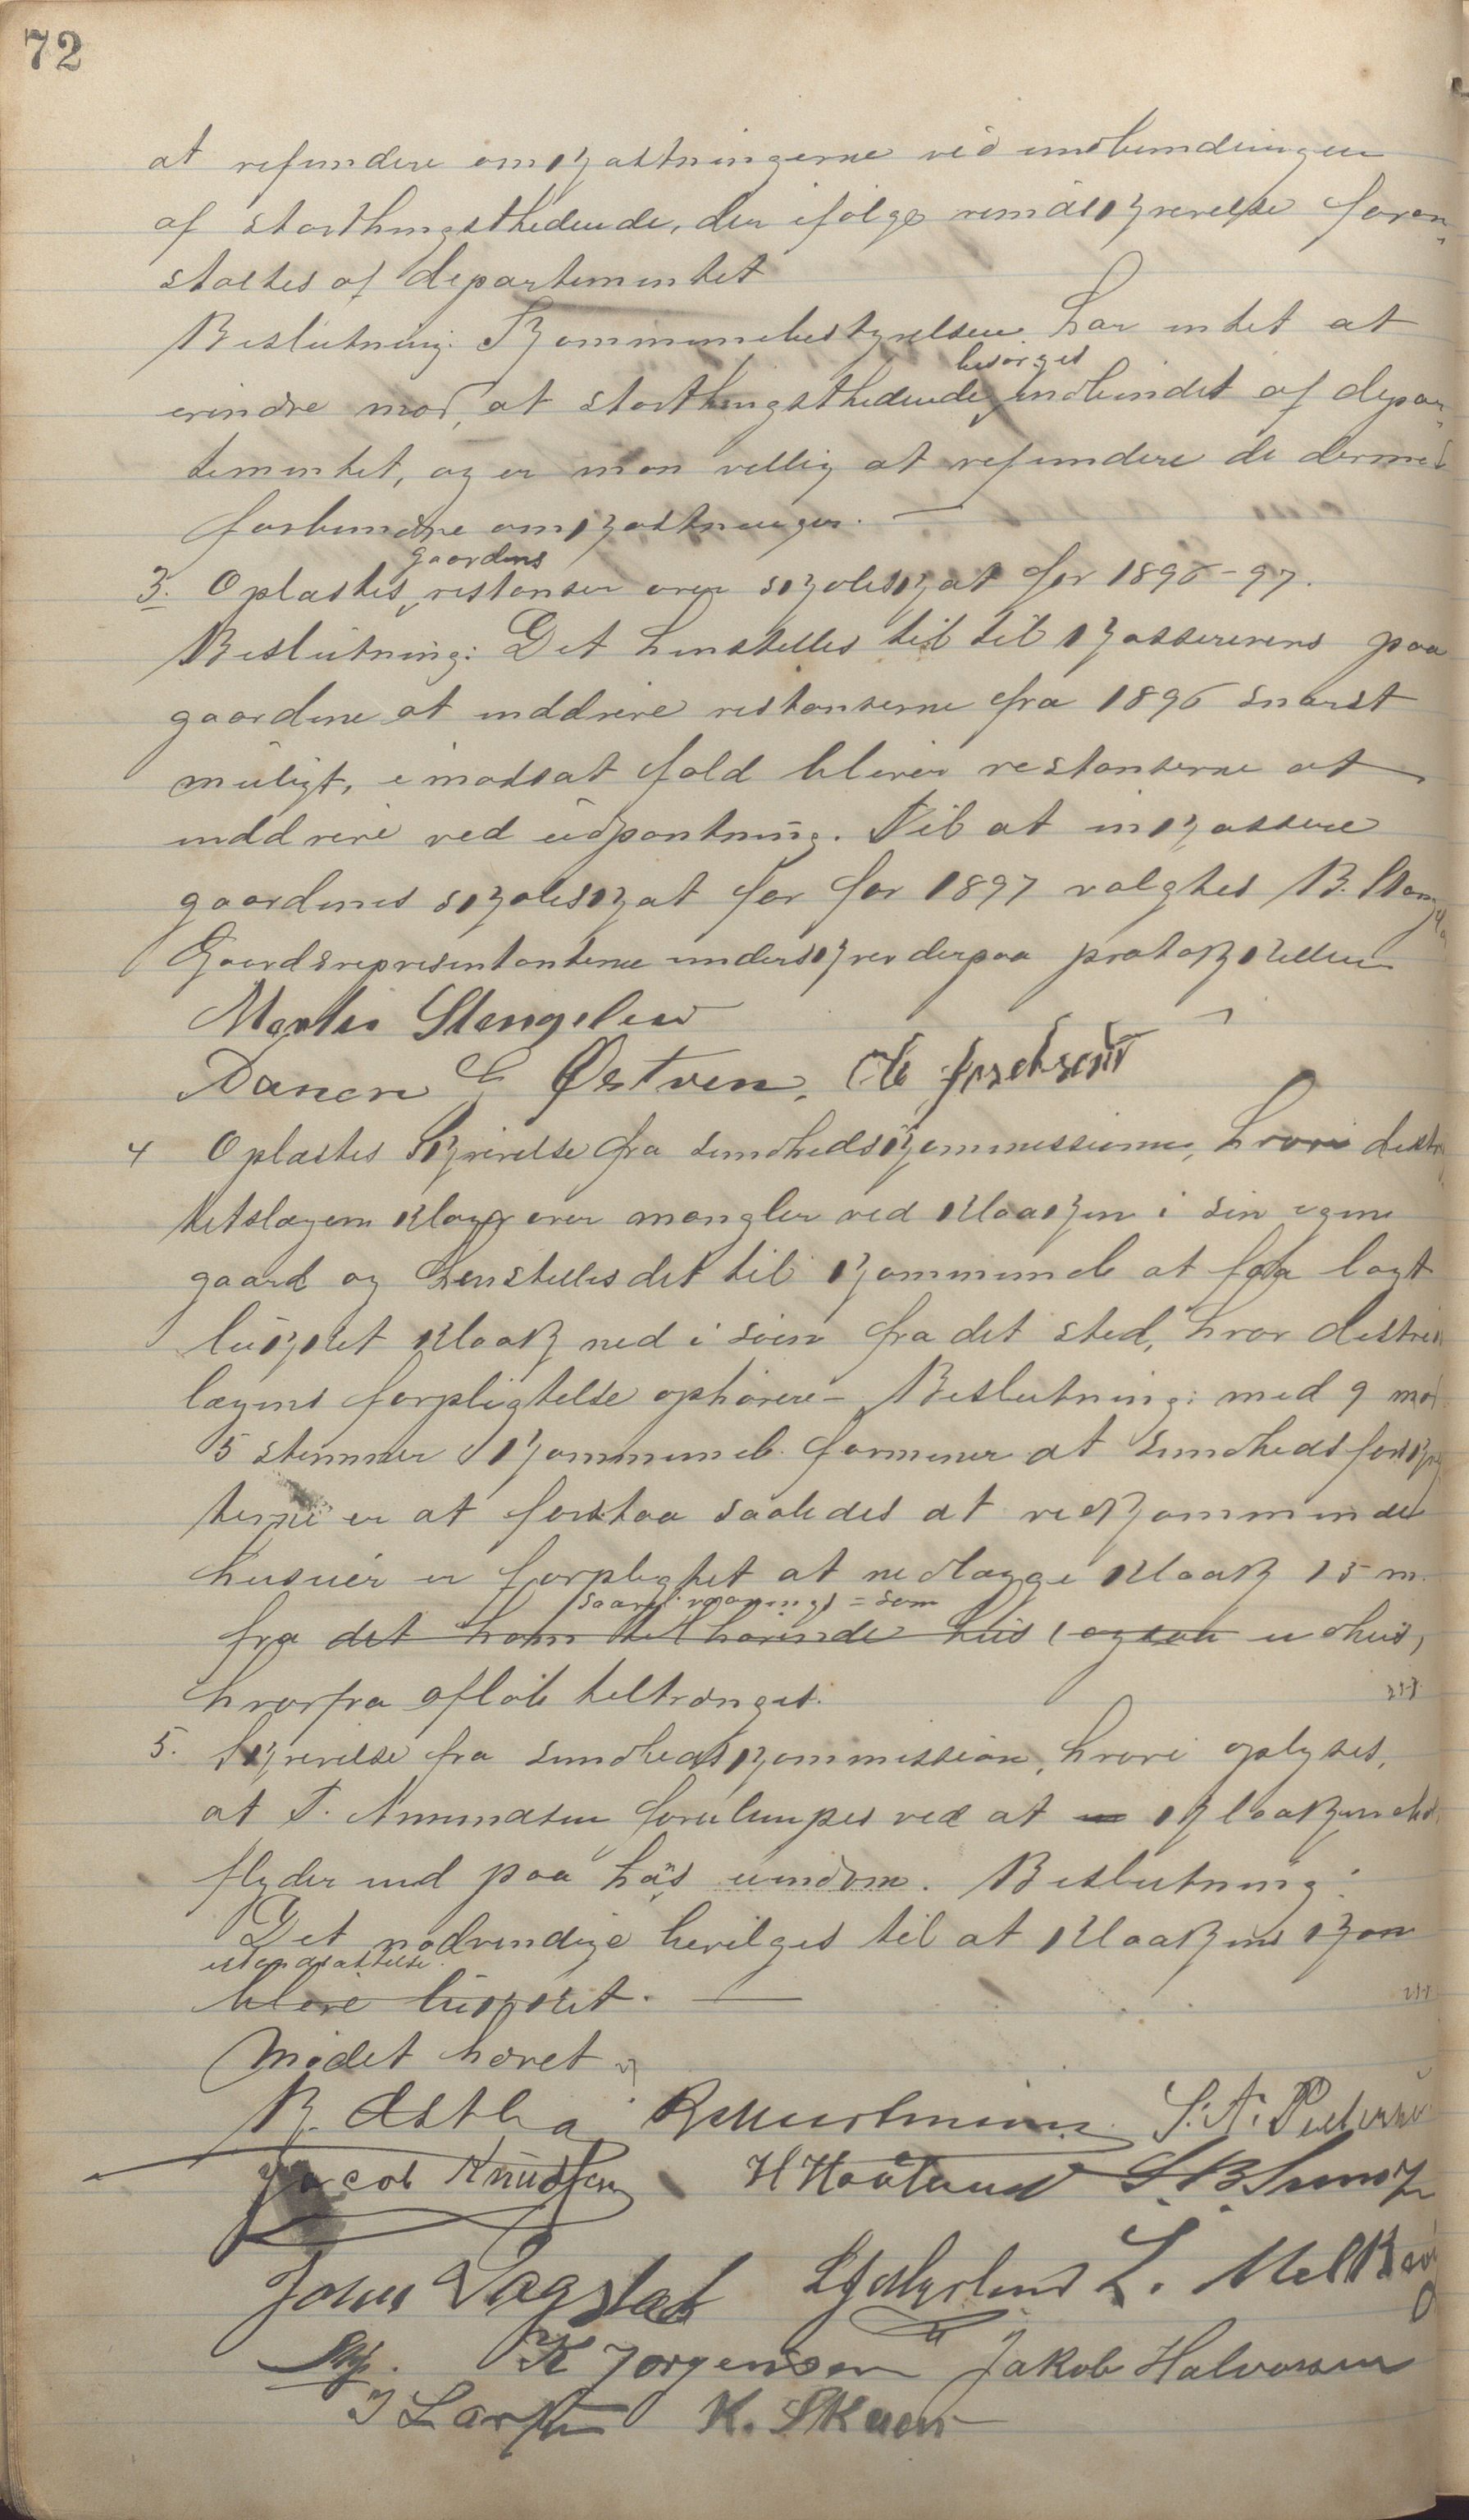 72
at refundere omkostningerne ved indbindingen
af storthingsthedende, der ifølge rundskrivelse foran-
staltes af departementet
Beslutning: Kommunebestyrelsen har intet at
erindre mod, at storthingsthedende besørges indbundet af depar-
tementet, og er man villig at refundere de dermed
forbundne omkostninger. —
3. Oplæstes gaardens restanser over skoleskat for 1896-97.
Beslutning: Det henstilles til til kassererens paa
gaardene at inddrive restanserne fra 1896 snarest
muligt, i modsat fald bliver restanserne at
inddrive ved udpantning. Til at inkassere
gaardenes skoleskat for for 1897 valgtes B. Stang
Gaardsrepresentanterne underskrev derpaa protokollen
Martin Stengelsen
Østven, Ole
4 Oplæstes skrivelse fra sundhedskommissionen, hvori distri
ktslægen klager over mangler ved kloaken i sin egen
gaard og henstilles det til kommunen at faa lagt
lukket kloak ned i søen fra det sted, hvor distrikts
lægens forpligtelse ophører – Beslutning: med 9 mod
5 stemmer Kommunen formener at sundhedsforskrif
terne er at forstaa saaledes at vedkommende
huseier er forpligtet at nedlægge kloak 15 m.
fra det ham tilhørende hus (ogsaa saavel vaanings- som udhus,
hvorfra afløb tiltrænges.
5. Skrivelse fra sundhedskommission, hvori oplyses,
at T. Ammundsen forulempes ved at kloakindhold
flyder ind paa hans eiendom. Beslutning:
Det nødvendige bevilges til at kloakens kan
istandsættelse.
blive lukket. —
Mødet hævet
B. Østbø S. A. Pedersen
Jacob Knudsen H Hovland S. B. Sund
John Vagstad L. Melkev
K Jørgensen Jakob Halvorsen
J Larsen K. Skaar